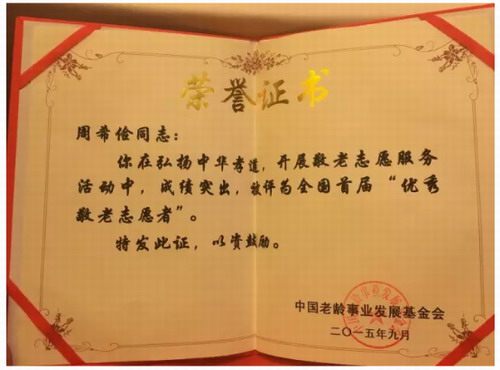 荣誉证书
周希俭同志：
你在弘扬中华孝道，开展敬老志愿服务
活动中，成绩突出，被评为全国首届“优秀
敬老志愿者”。
特发此证，以资鼓励。
中国老龄事业发展基金会
二〇一五年九月